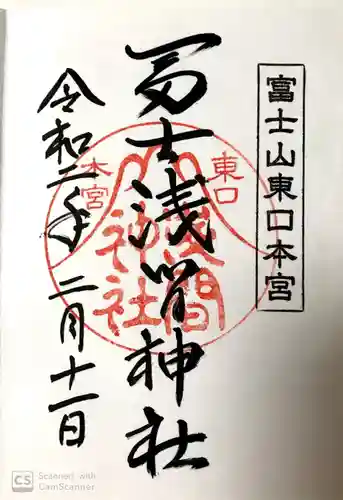 富士山東口本宮
冨士浅間神社
東口
本宮
浅間
神社
令和二年 二月十一日
CS Scanned with
CamScanner